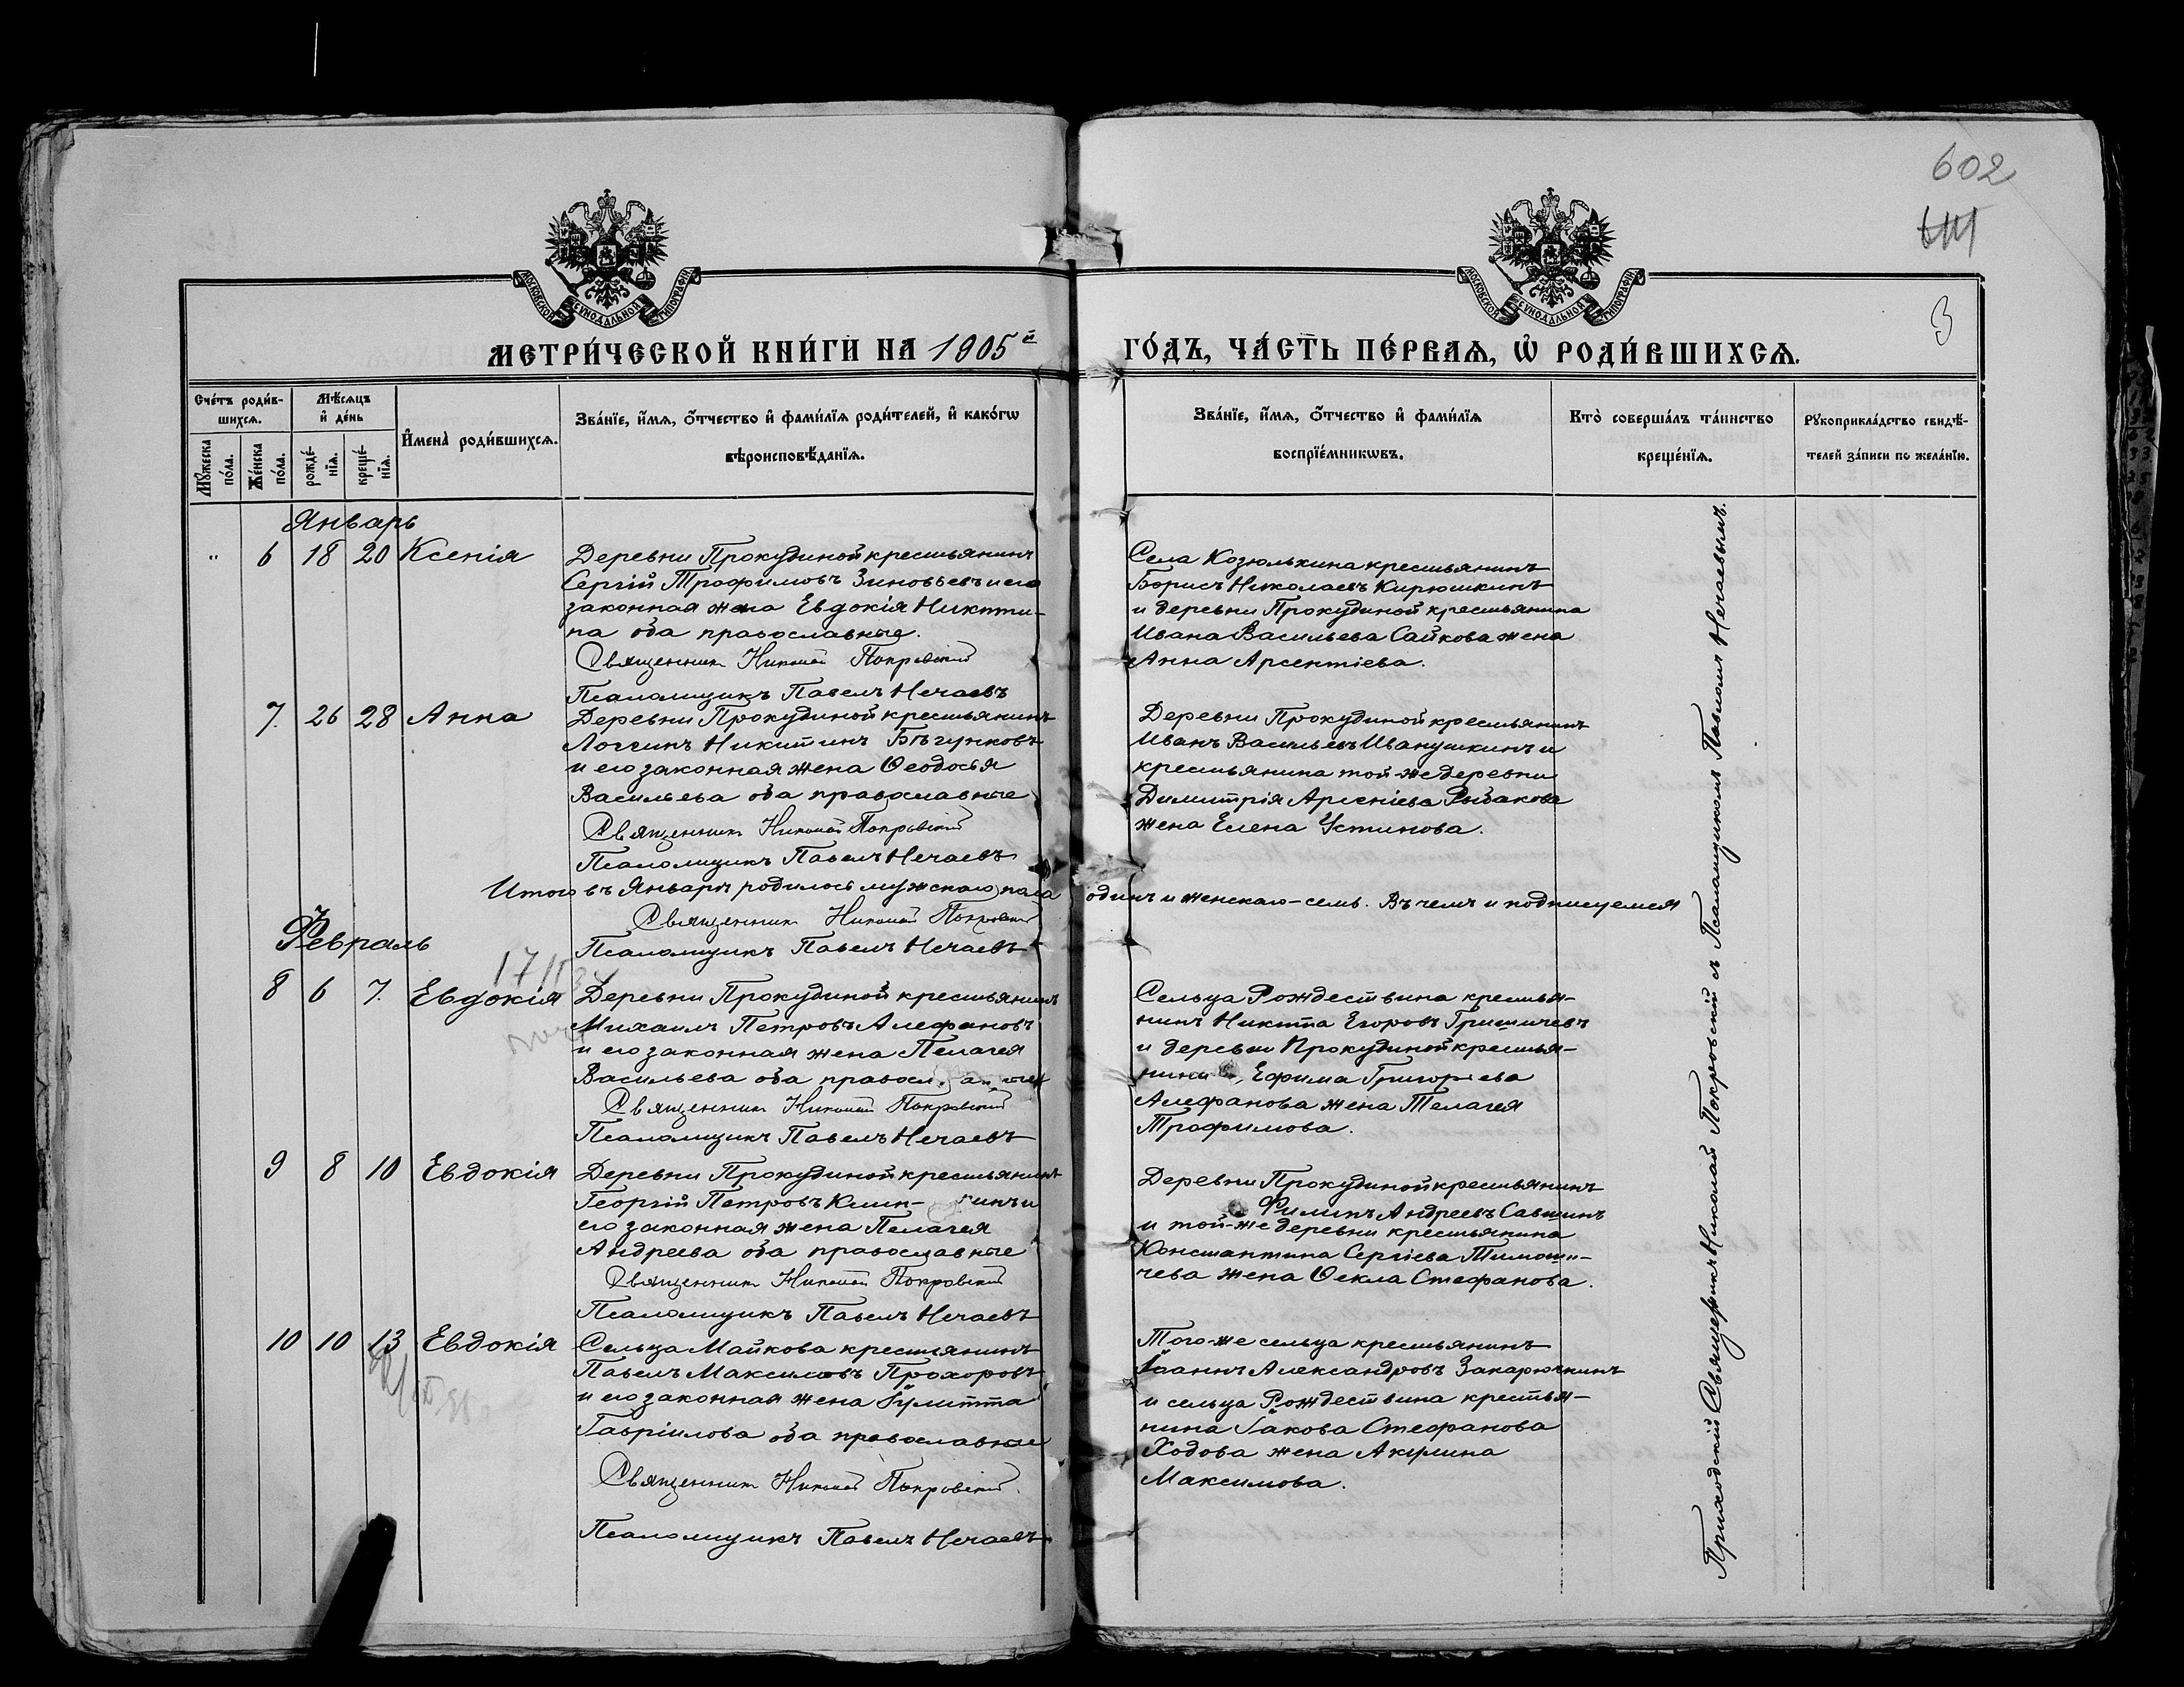 602
3
МОСКОВСКОЙ СѴНОДАЛЬНОЙ ТИПОГРАФІИ
МОСКОВСКОЙ СѴНОДАЛЬНОЙ ТИПОГРАФІИ
МЕТРИ́ЧЕСКОЙ КНИ́ГИ НА 1905й
ГО́ДЪ, ЧА́СТЬ ПЕ́РВАѦ, Ѡ҆ РОДИ́ВШИХСѦ.
Сче́тъ роди́в-
шихсѧ.
Мꙋ́жеска по́ла.
Же́нска по́ла.
Мѣ́сѧцъ
и҆ де́нь
рожде́-
нїѧ.
креще́-
нїѧ.
И҆мена̀ роди́вшихсѧ.
Зва́нїе, и҆́мѧ, ѻ҆́тчество и҆ фами́лїѧ роди́телей, и҆ како́гѡ
вѣроисповѣ́данїѧ.
Зва́нїе, и҆́мѧ, ѻ҆́тчество и҆ фами́лїѧ
воспрїе́мникѡвъ.
Кто̀ соверша́лъ та́инство
креще́нїѧ.
Рꙋкоприкла́дство свидѣ́-
телей за́писи по жела́нїю.
Январь
" 6 18 20 Ксенія
Деревни Прокудиной крестьянинъ
Сергій Трофимовъ Зиновьевъ и его
законная жена Евдокія Никити-
на оба православные.
Священникъ Николай Покровскій
Псаломщикъ Павелъ Нечаевъ
Села Козюлькина крестьянинъ
Борисъ Николаевъ Кирюшкинъ
и деревни Прокудиной крестьянина
Ивана Васильева Сайкова жена
Анна Арсентіева.
7. 26 28 Анна
Деревни Прокудиной крестьянинъ
Логгинъ Никитинъ Бѣгунковъ
и его законная жена Ѳеодосья
Васильева оба православные
Священникъ Николай Покровскій
Псаломщикъ Павелъ Нечаевъ
Деревни Прокудиной крестьянинъ
Иванъ Васильевъ Иванушкинъ и
крестьянина той-же деревни
Димитрія Арсеніева Рыбакова
жена Елена Устинова.
Итого въ Январѣ родилось мужскаго пола одинъ и женскаго - семь. Въ чемъ и подписуемся
Священникъ Николай Покровскій
Псаломщикъ Павелъ Нечаевъ
Февраль
8 6 7. Евдокія
Деревни Прокудиной крестьянинъ
Михаилъ Петровъ Алефановъ
и его законная жена Пелагея
Васильева оба православные
Священникъ Николай Покровскій
Псаломщикъ Павелъ Нечаевъ
Сельца Рождествина крестья-
нинъ Никита Егоровъ Гришичевъ
и деревни Прокудиной крестья-
нина Ефима Григорьева
Алефанова жена Пелагея
Трофимова.
9 8 10 Евдокія
Деревни Прокудиной крестьянинъ
Георгій Петровъ
его законная жена Пелагея
Андреева оба православные
Священникъ Николай Покровскій
Псаломщикъ Павелъ Нечаевъ
Деревни Прокудиной крестьянинъ
Филипъ Андреевъ Савшинъ
и той-же деревни крестьянина
Константина Сергіева Тимоши-
чева жена Ѳекла Стефанова.
10 10 13 Евдокія
Сельца Майкова крестьянинъ
Павелъ Максимовъ Прохоровъ
и его законная жена Іулитта
Гавріилова оба православные
Священникъ Николай Покровскій
Псаломщикъ Павелъ Нечаевъ
Того-же сельца крестьянинъ
Іоаннъ Александровъ Захарючкинъ
и сельца Рождествина крестья-
нина Іакова Стефанова
Ходова жена Акулина
Максимова.
Приходскій Священникъ Николай Покровскій съ Псаломщикомъ Павломъ Нечаевымъ.